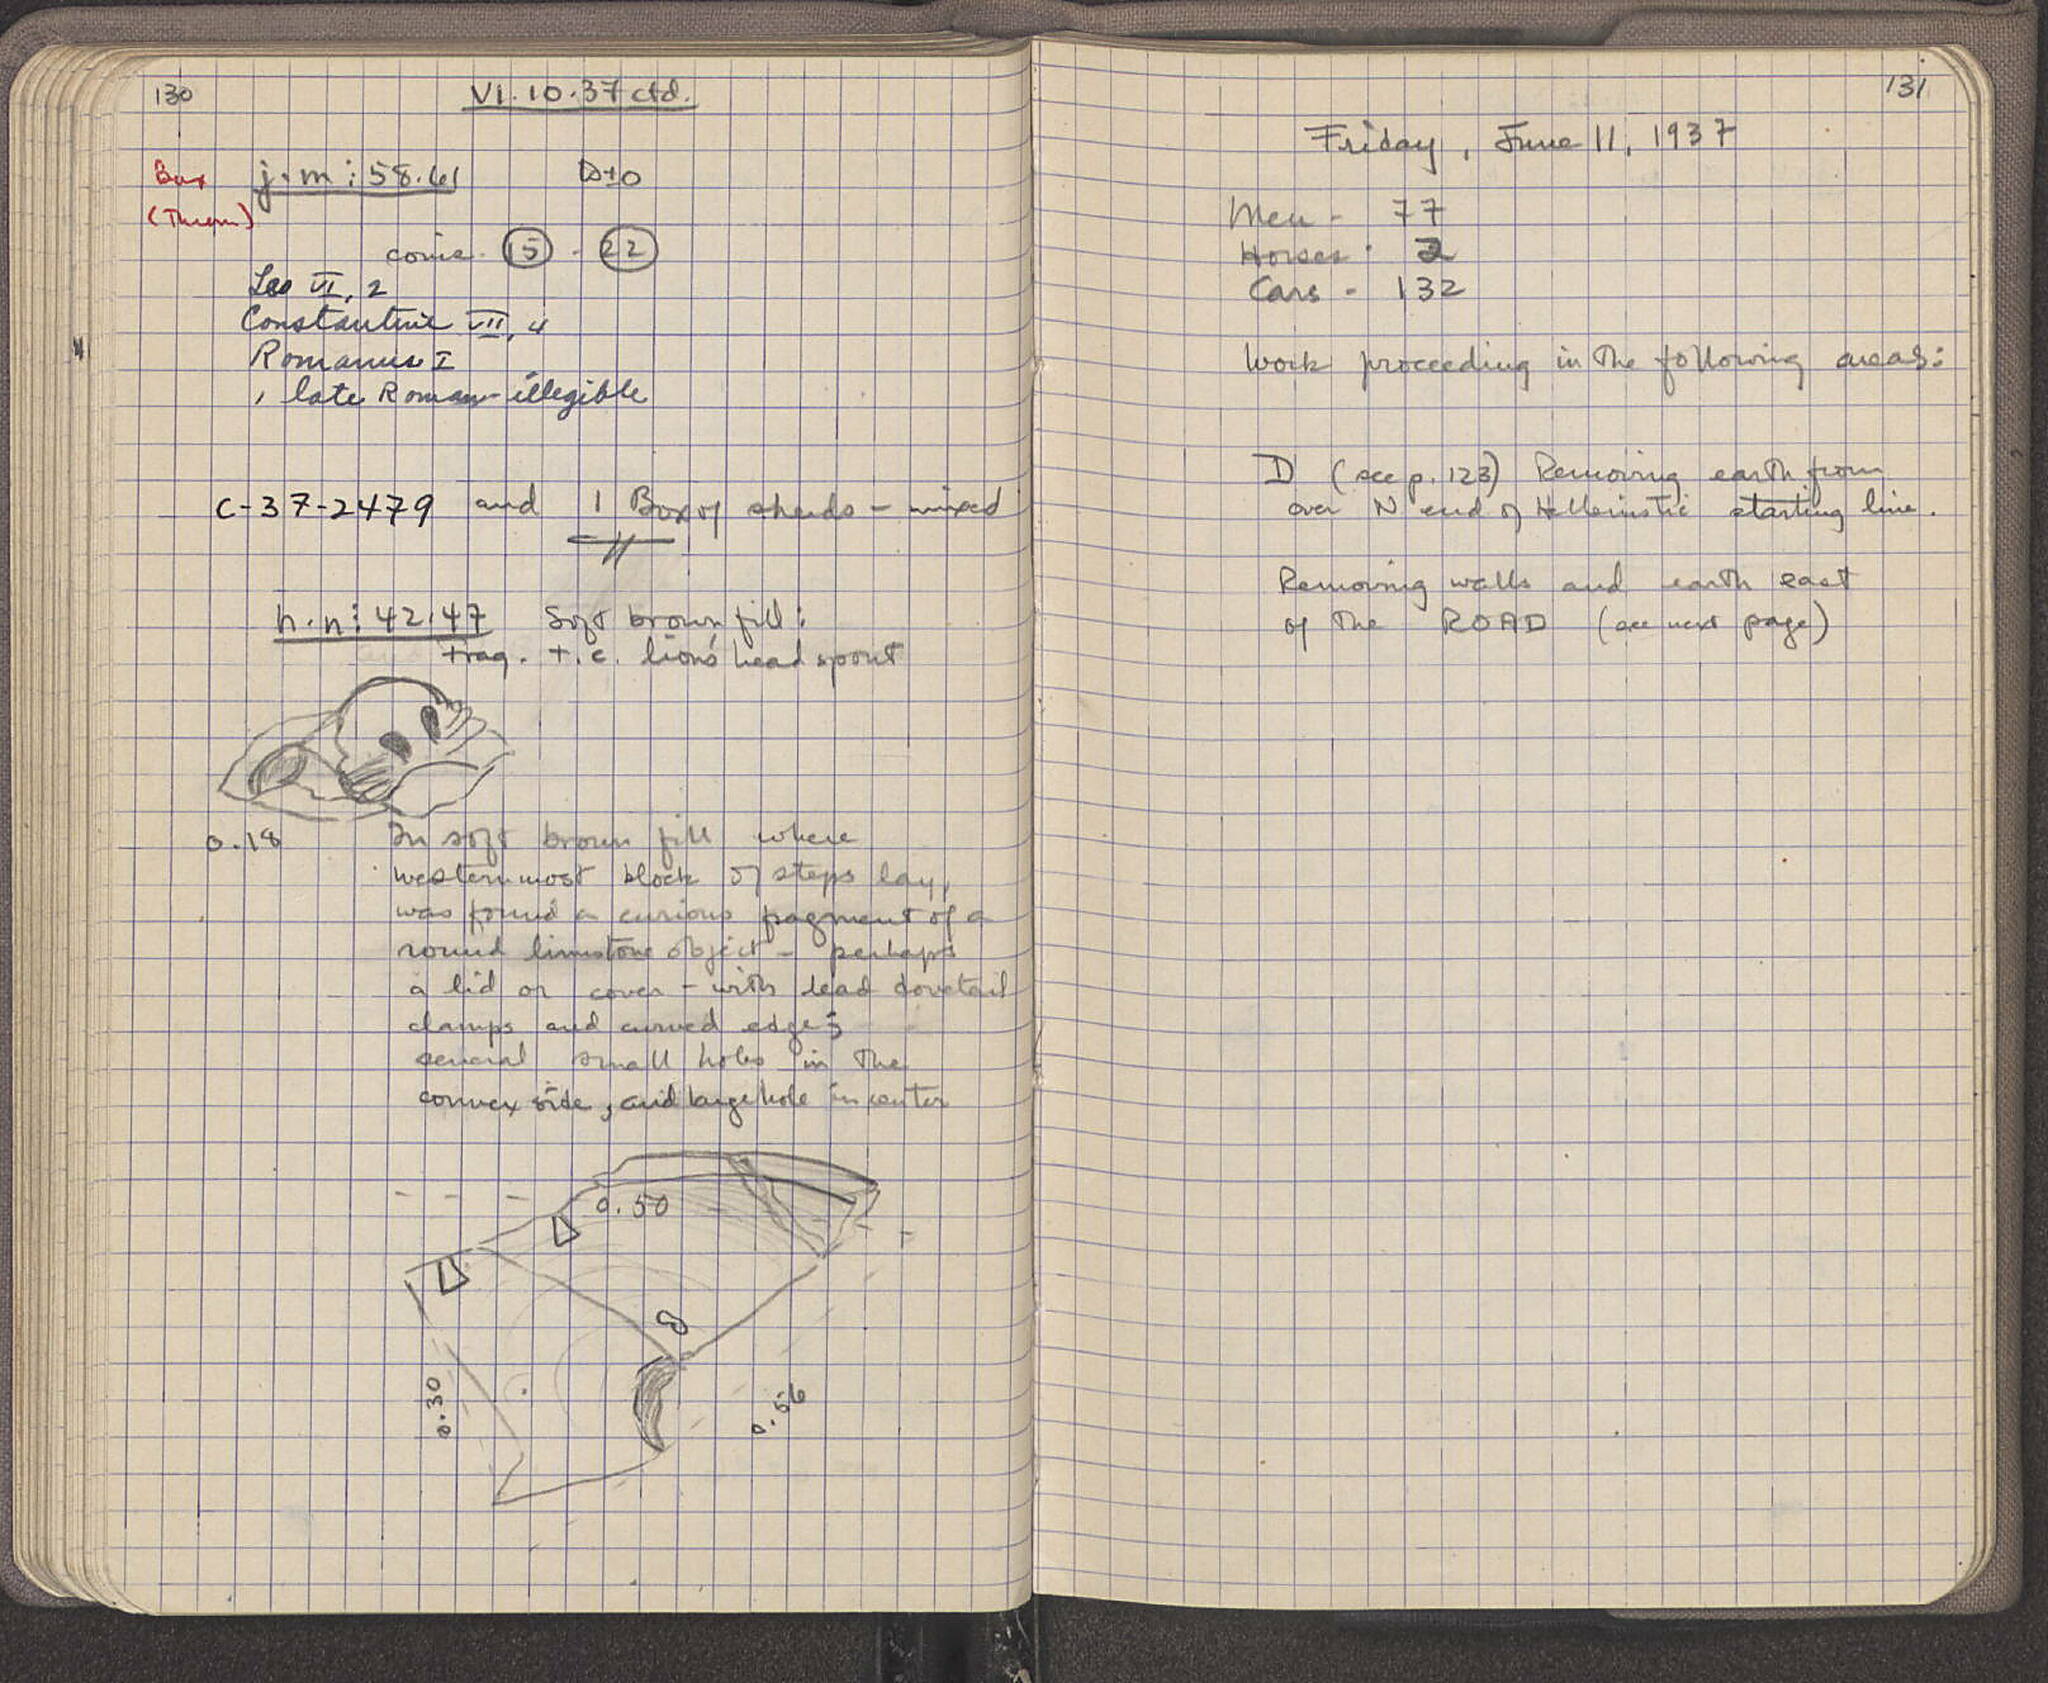 130
VI.10.37 ctd.
Box j.m:58.61
(Thrown)
coins (15) - (22)
Leo VI, 2
Constantine VII, 4
Romanus I
, late Roman - illegible
C-37-2479 and 1 Box of sherds - mixed
h.n:42.47 Soft brown fill:
Frag. t.c. lion's head spout
0.18 In soft brown fill where
westernmost block of steps lay,
was found a curious fragment of a
round limstone object - perhaps
a lid or cover - with lead dovetail
clamps and curved edge;
several small holes in the
convex side, and large hole in center
0.50
0.30
0.56
131
Friday, June 11, 1937
Men - 77
Horses - 2
Cars - 132
Work proceeding in the following areas:
D (see p. 123) Removing earth from
over N end of Hellenistic starting line.
Removing walls and earth east
of the ROAD (see next page)